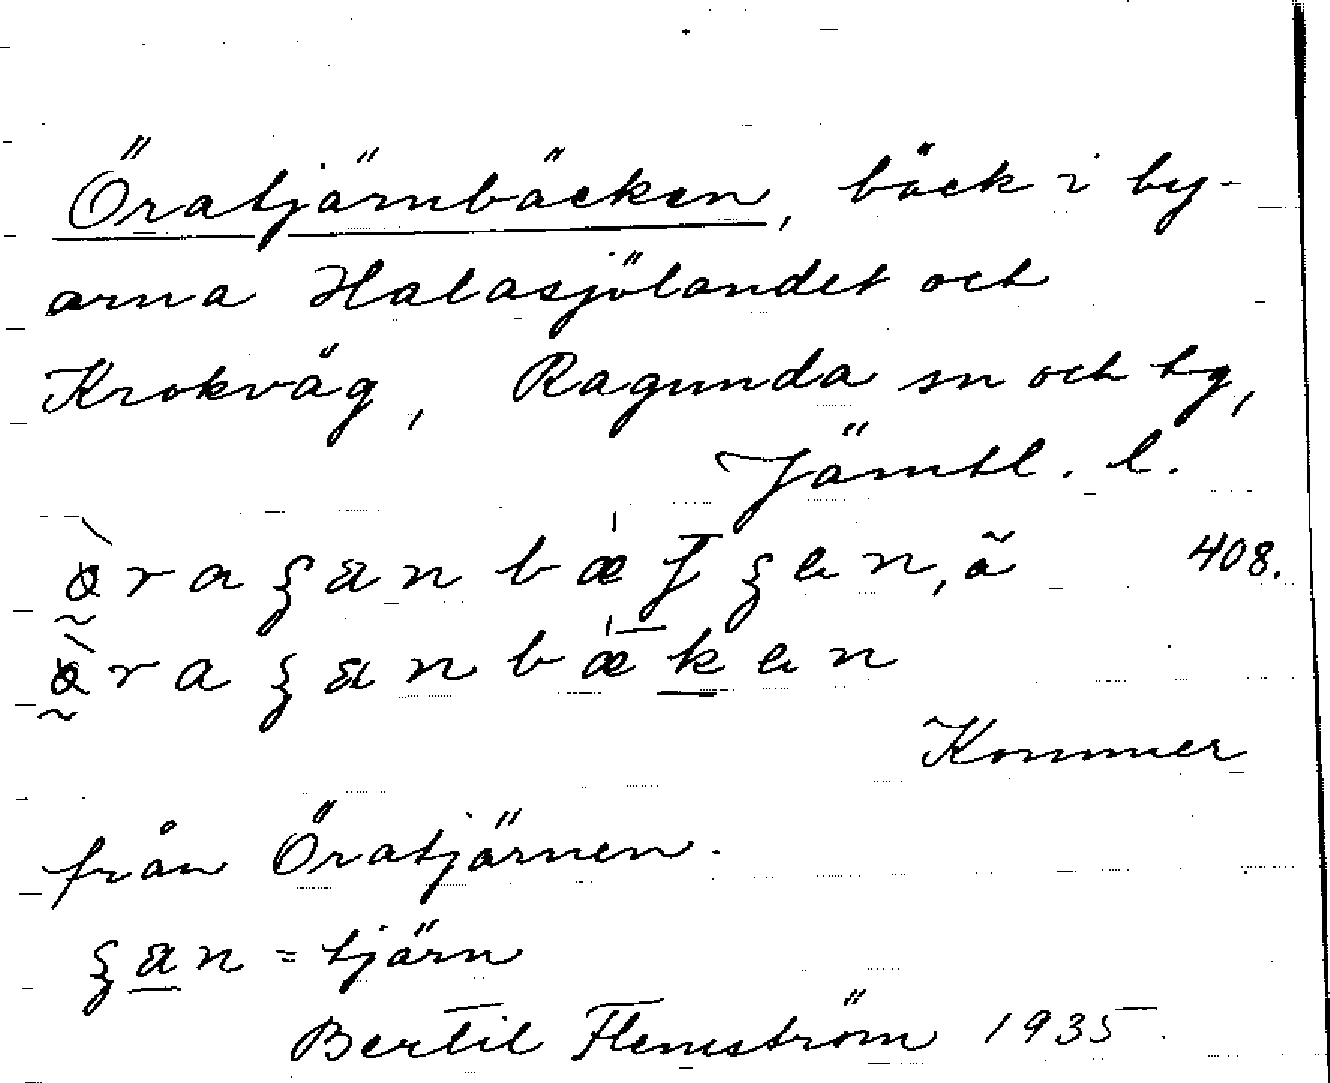 Öratjärnbäcken, bäck i by-
arna Halasjölandet och
Krokvåg, Ragunda sn och tg,
Jämtl. l.
408.
Kommer
från Öratjärnen.
= tjärn
Bertil Flemström 1935.